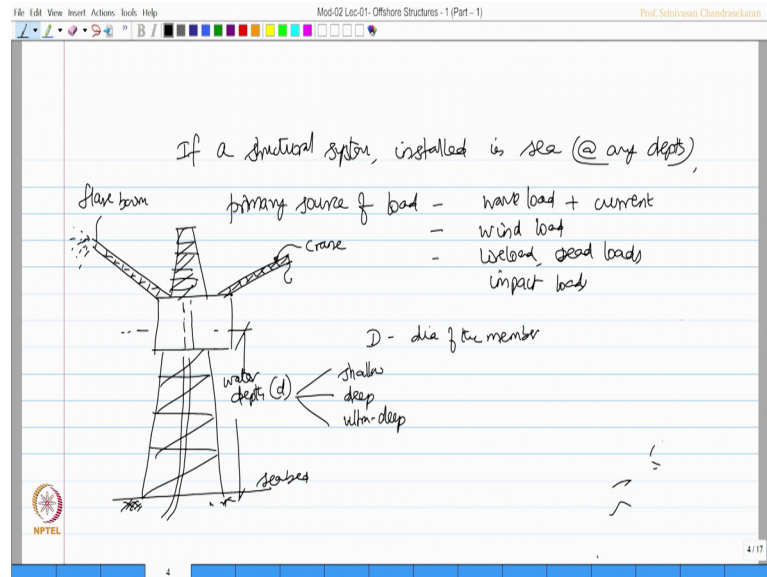 File Edit View Insert Actions Tools Help
Mod-02 Lec-01- Offshore Structures - 1 (Part – 1)
Prof. Srinivasan Chandrasekaran
If a structural system, installed in sea (@ any depth),
flare boom
primary source of load - wave load + current
- wind load
- liveload, dead loads
impact loads
crane
D - dia of the member
water depth (d)
shallow
deep
ultra-deep
seabed
NPTEL
4/17
4